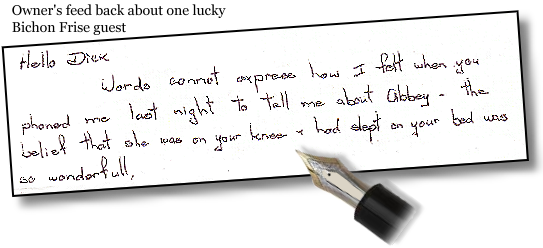 Owner's feed back about one lucky
Bichon Frise guest
Hello Dick
Words cannot express how I felt when you
phoned me last night to tell me about Abbey - the
belief that she was on your knee & had slept on your bed was
so wonderfull,